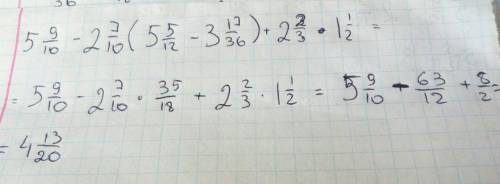 36 10
5 9/10 - 2 7/10 (5 5/12 - 3 17/36) + 2 2/3 · 1 1/2 =
= 5 9/10 - 2 7/10 · 35/18 + 2 2/3 · 1 1/2 = 5 9/10 - 63/12 + 8/2 =
= 4 13/20